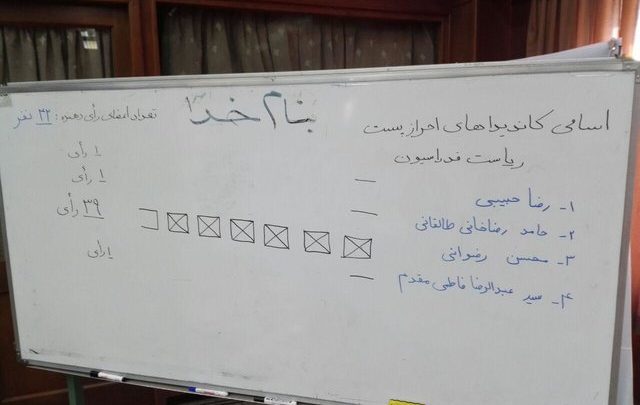 بنام خدا
تعداد اعضای رأی دهنده: ۴۲ نفر
اسامی کاندیداهای احراز پست
ریاست فدراسیون
۱- رضا حبیبی
۲- حامد رضاخانی طالقانی
۳- محسن رضوانی
۴- سید عبدالرضا فاطمی مقدم
۱ رأی
۱ رأی
۳۹ رأی
۱ رأی